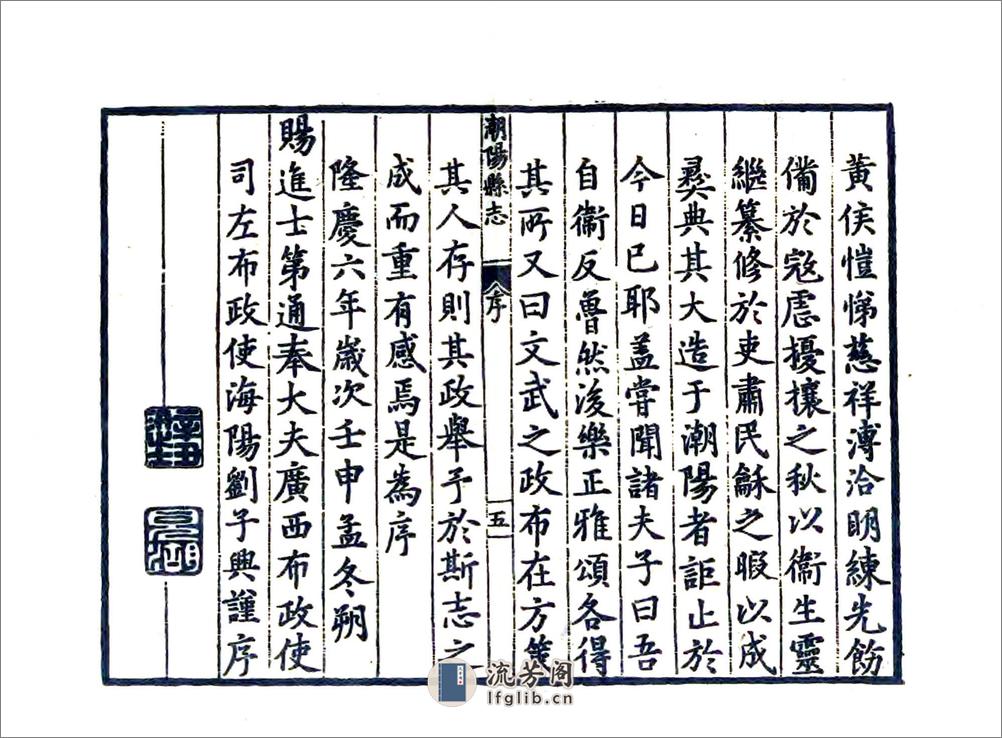 黃侯愷悌慈祥溥洽明練先飭
備於寇虐擾攘之秋以衞生靈
繼纂修於吏肅民龢之暇以成
彝典其大造于潮陽者詎止於
今日已耶盖甞聞諸夫子曰吾
自衞反魯然後樂正雅頌各得
其所又曰文武之政布在方策
潮陽縣志
序
五
其人存則其政舉予於斯志之
成而重有感焉是為序
隆慶六年歲次壬申孟冬朔
賜進士第通奉大夫廣西布政使
司左布政使海陽劉子興謹序
流芳阁
lfglib.cn